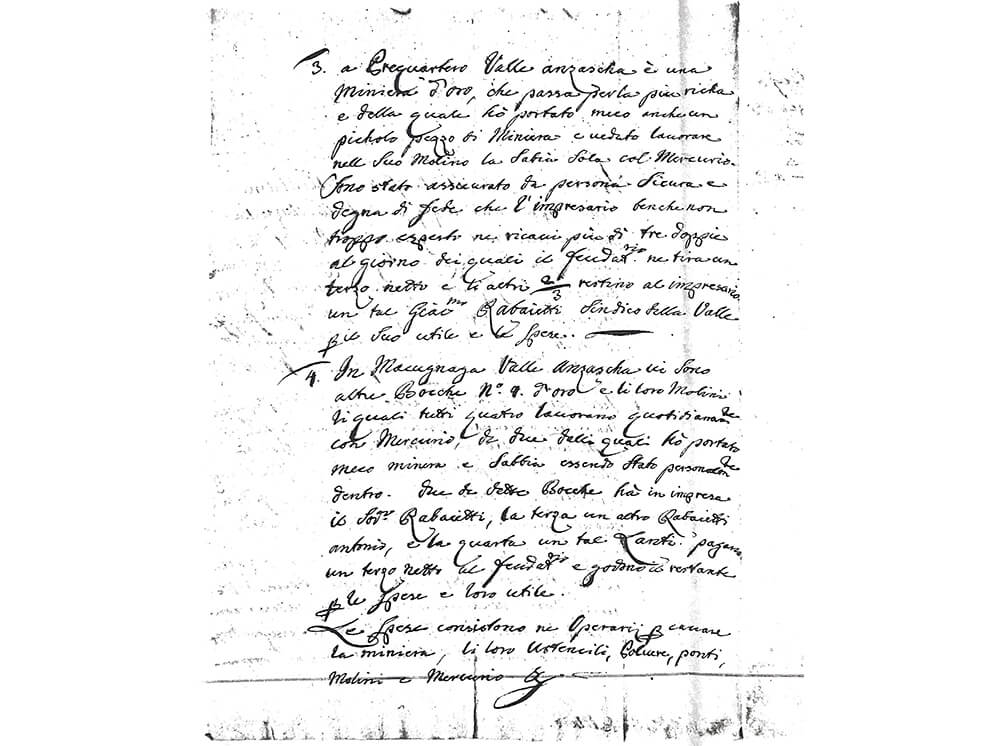 3. a Prequartero Valle anzascha è una
miniera d'oro, che passa per la piu richa
e della quale hò portato meco anche un
picholo pezzo di Miniera e veduto lavorare
nell Suo Molino la Sabia Sola col Mercurio.
Sono stato assicurato da persona Sicura e
degna di fede che l'impresario benche non
troppo experto ne ricavi piu di tre doppie
al giorno dei quali il feudat.rio ne tira un
terzo netto e li altri 2/3 restino al impresario
un tal Giac.mo Rabaietti Sindico della Valle
p il Suo utile e le Spese.
4. In Macugnaga Valle Anzascha vi Sono
altre Bocche N.o 4. d'oro e li loro Molini
li quali tutti quatro lavorano quotidianam.te
con Mercurio, da due delli quali hò portato
meco minera e Sabbia essendo Stato personalm.te
dentro. due de dette Bocche hà in impresa
il Sod.o Rabaietti, la terza un altro Rabaietti
antonio, e la quarta un tal Lanti. pagano
un terzo netto al feudat.rio e godono il restante
p le Spese e loro utile.
Le Spese consistono ne Operarj p cavare
la miniera, li loro Ustencili, Polvere, ponti,
Molini e Mercurio